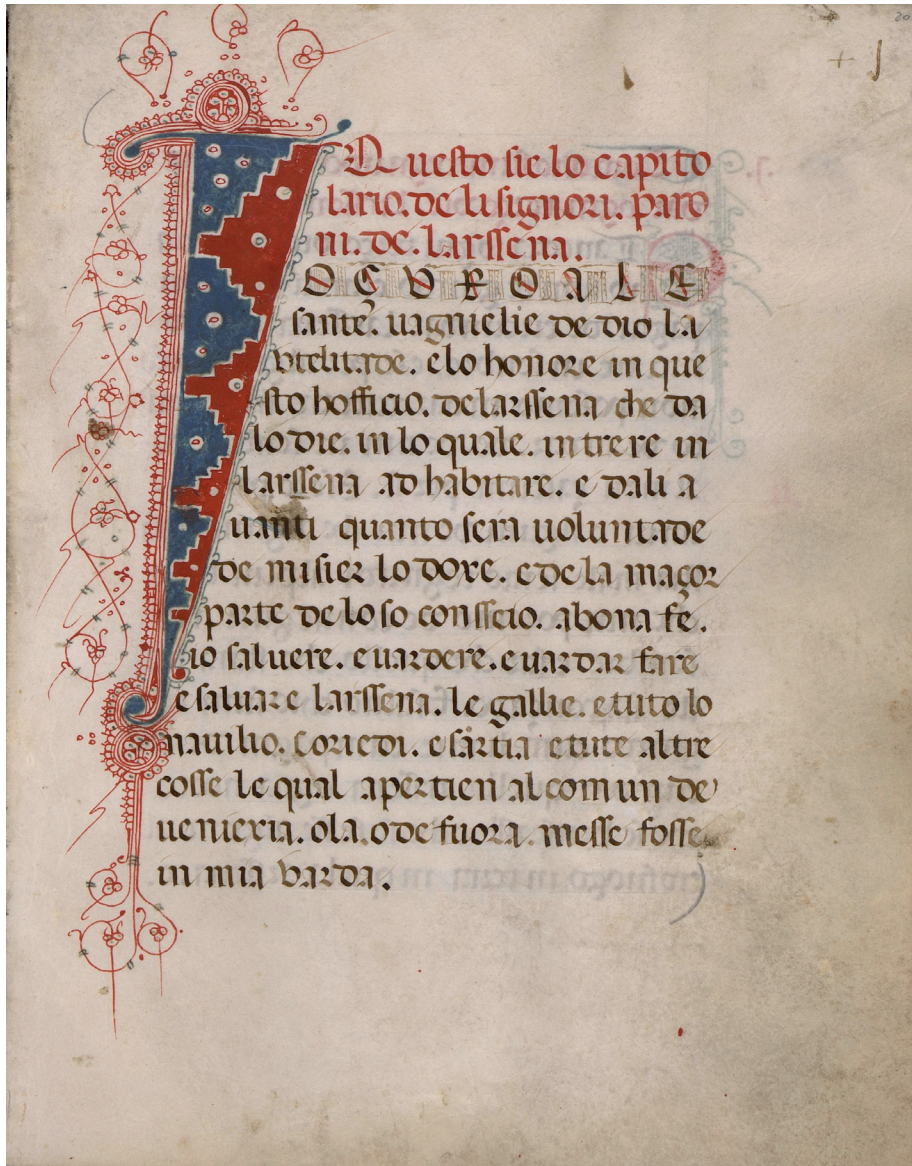 Questo sie lo capito
lario. de li signori. paro
ni. de. larssena.
IO CURO ALE
sante. uagnielie de dio la
utelitade. e lo honore in que
sto hofficio. de larssena che da
lo die. in lo quale. intrere in
larssena ad habitare. e dali a
uanti quanto sera uoluntade
de misier lo doxe. e de la maçor
parte de lo so consseio. a bona fe.
io saluere. e uardere. e uardar fare
e saluar e larssena. le gallie. e tuto lo
nauilio. coriedi. e sartia e tute altre
cosse le qual apertien al comun de
ueniexia. o la. o de fuora. messe fosse
in mia varda.